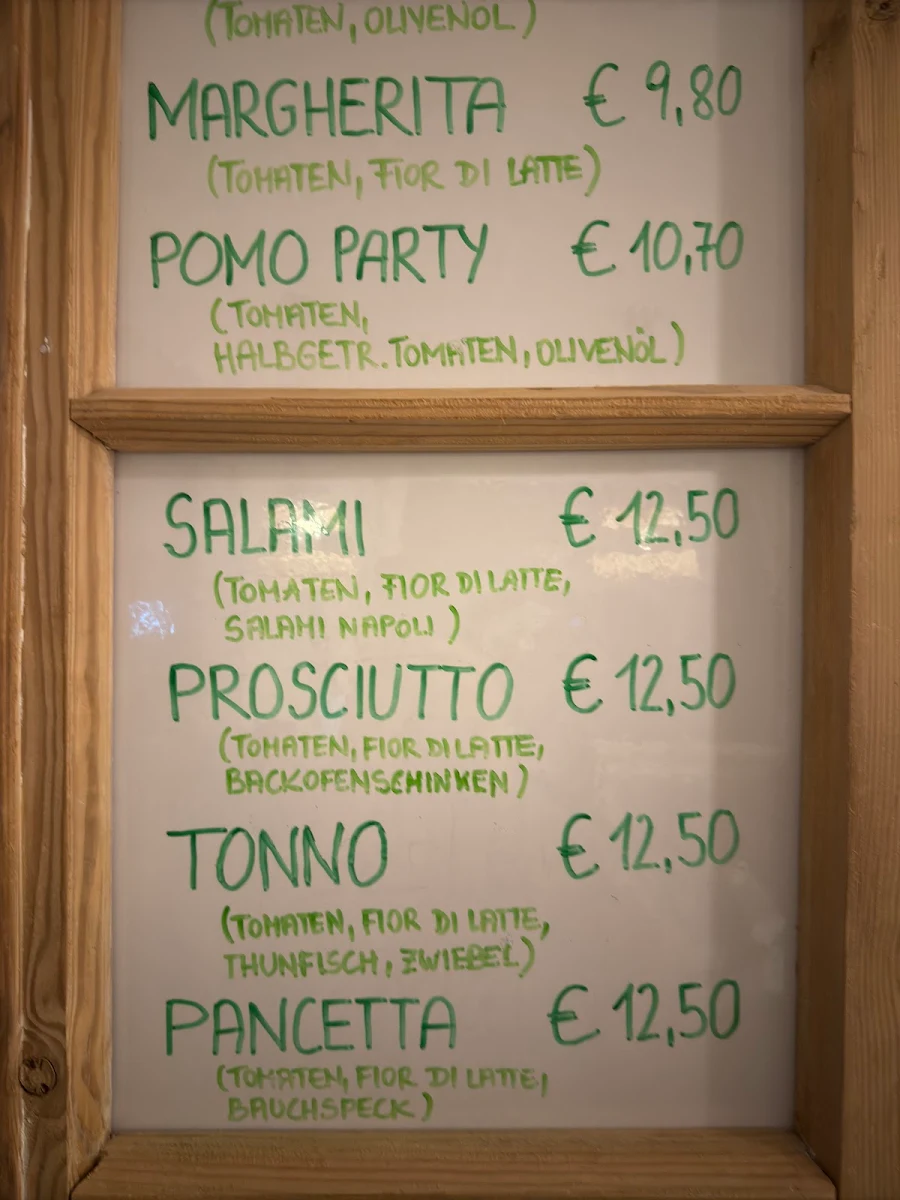 (TOMATEN, OLIVENÖL)
MARGHERITA € 9,80
(TOMATEN, FIOR DI LATTE)
POMO PARTY € 10,70
(TOMATEN,
HALBGETR. TOMATEN, OLIVENÖL)
SALAMI € 12,50
(TOMATEN, FIOR DI LATTE,
SALAMI NAPOLI)
PROSCIUTTO € 12,50
(TOMATEN, FIOR DI LATTE,
BACKOFENSCHINKEN)
TONNO € 12,50
(TOMATEN, FIOR DI LATTE,
THUNFISCH, ZWIEBEL)
PANCETTA € 12,50
(TOMATEN, FIOR DI LATTE,
BAUCHSPECK)